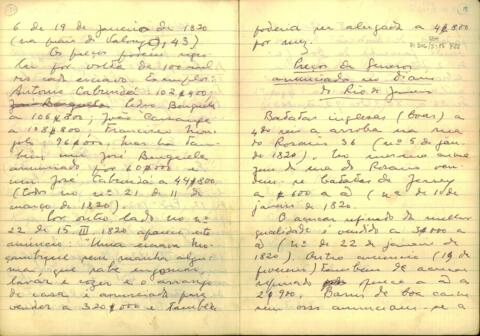 6 de 19 de janeiro de 1820
(na praia do Valongo, 43)
Os preços podem regu-
lar por volta de 100 mil
réis cada escravo. Exemplos:
Antonio Cabinda: 102$900;
Pedro Benguela
a 106$800; João Camange
a 108$800; Francisco Mon-
jolo 96$000. Mas ha tam-
bem um José Benguela
anunciado por 60$000 e
um José Cabinda a 44$800
(todos no nº 21 de 11 de
março de 1820).
Por outro lado no nº
22 de 15 III 1820 aparece este
anuncio: "Uma escrava Mo-
çambique sem manha algu-
ma, que sabe engomar,
lavar e cozer e o arranjo
de casa é anunciada para
vender a 320$000 e tambem
poderia ser alugada a 4$800
por mez.
Preços de generos
anunciados no Diario
do Rio de Janeiro
Batatas inglesas (boas) a
480 reis a arroba na rua
do Rosario 36 (nº 5 de jan.
de 1820). No mesmo arma-
zem da rua do Rosario vendem-
se batatas de
a $600 a @ (nº de 10 de
janeiro de 1820.
O açucar refinado da melhor
qualidade é vendido a 3$000 a
@ (nº de 22 de janeiro de
1820). Outro anuncio (19 de
fevereiro) tambem de açucar
refinado a @ as
2$900. Barris de boa carne
sem osso anunciam-se a